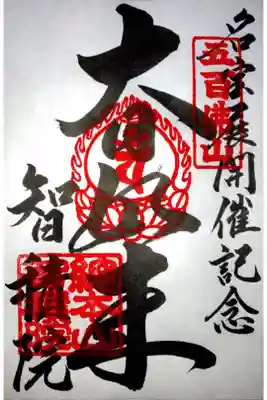 名寳展開催記念
五百佛山
大日如来
智積院
總本山
智積院